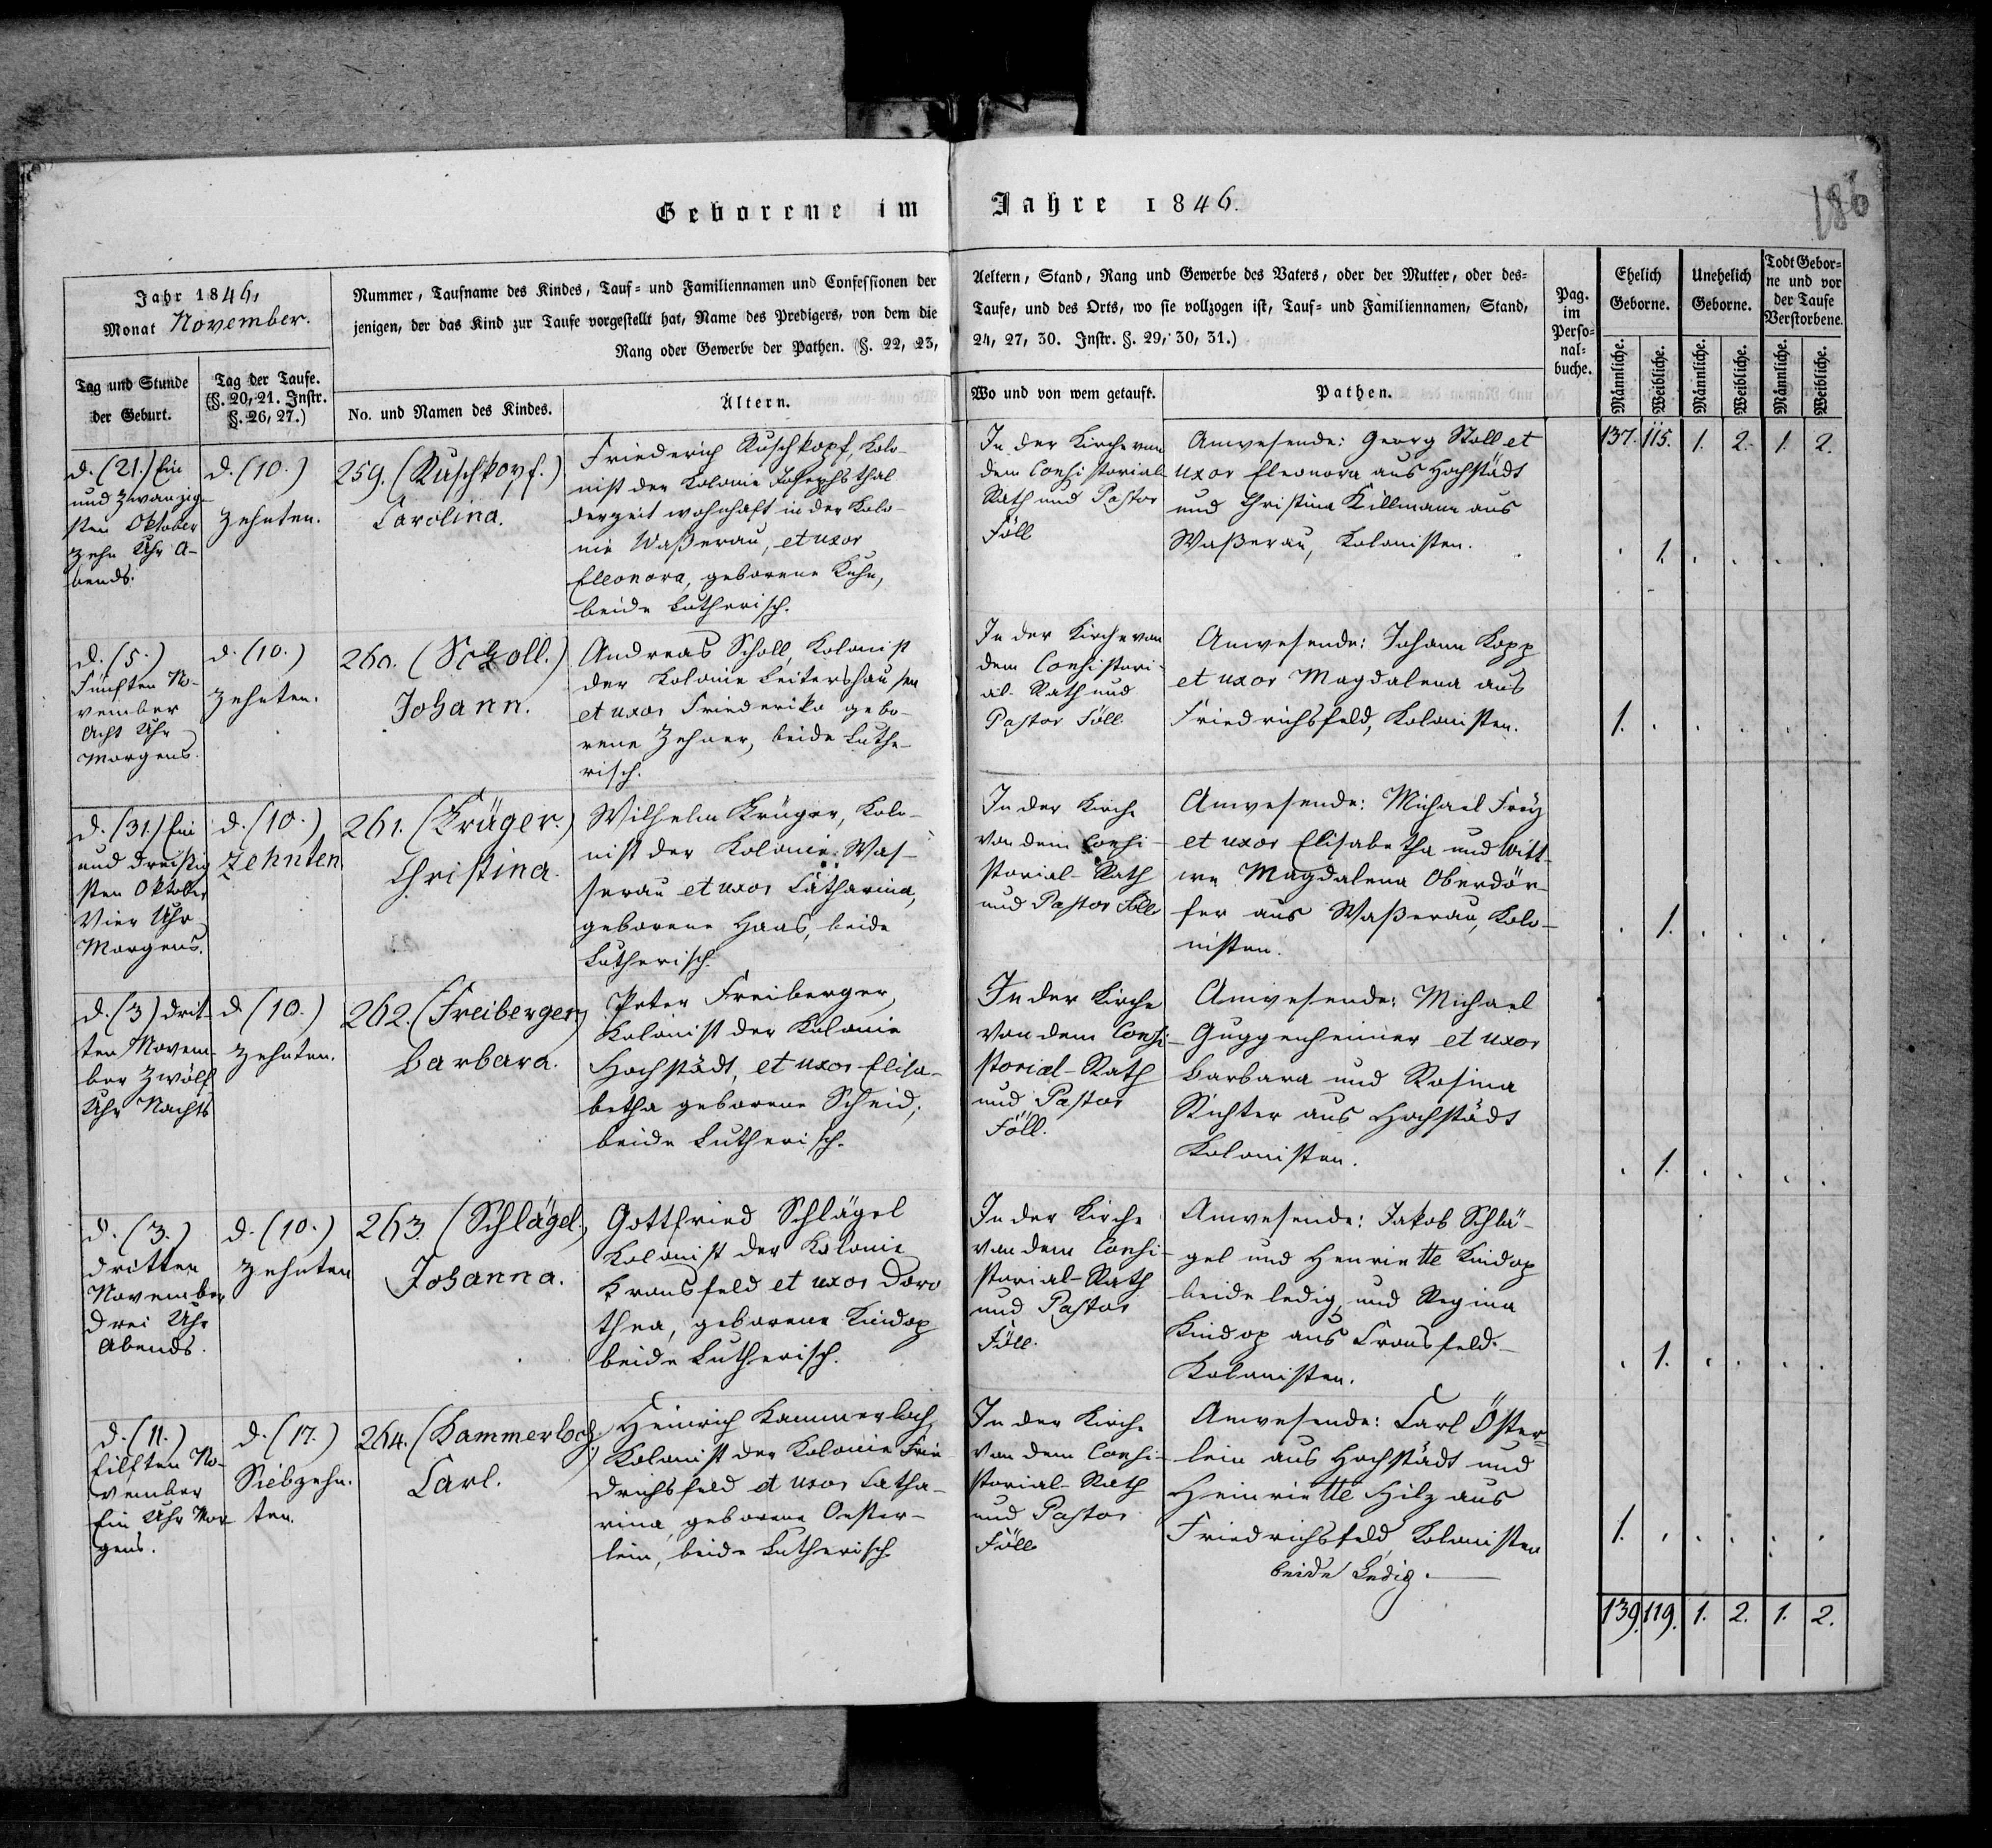 Geborene im Jahre 1846.
186
Jahr 1846,
Monat November.
Nummer, Taufname des Kindes, Tauf- und Familiennamen und Confessionen der Aeltern, Stand, Rang und Gewerbe des Vaters, oder der Mutter, oder des-
jenigen, der das Kind zur Taufe vorgestellt hat, Name des Predigers, von dem die Taufe, und des Orts, wo sie vollzogen ist, Tauf- und Familiennamen, Stand,
Rang oder Gewerbe der Pathen. (§. 22, 23, 24, 27, 30. Instr. §. 29, 30, 31.)
Pag.
im
Perso-
nal-
buche.
Ehelich
Geborne.
Unehelich
Geborne.
Todt Gebor-
ne und vor
der Taufe
Verstorbene.
Tag und Stunde
der Geburt.
Tag der Taufe.
(§. 20, 21. Instr.
§. 26, 27.)
No. und Namen des Kindes.
Ältern.
Wo und von wem getauft.
Pathen.
Männliche.
Weibliche.
Männliche.
Weibliche.
Männliche.
Weibliche.
137. 115. 1. 2. 1. 2.
d. (21.) Ein
und zwanzig-
sten Oktober
zehn Uhr A-
bends.
d. (10.)
zehnten.
259. (Ruschkopf.)
Carolina.
Friederich Ruschkopf, Kolo-
nist der Kolonie Josephsthal
derzeit wohnhaft in der Kolo-
nie Waßerau, et uxor
Eleonora, geborene Kuhn,
beide Lutherisch.
In der Kirche von
dem Consistorial-
Rath und Pastor
Föll
Anwesende: Georg Stoll et
uxor Eleonora aus Hochstädt
und Christina Killmann aus
Waßerau, Kolonisten.
. 1. . . . .
d. (5.)
Fünften No-
vember
Acht Uhr
Morgens.
d. (10.)
zehnten.
260. (Scholl.)
Johann.
Andreas Scholl, Kolonist
der Kolonie Leitershausen
et uxor Friederika gebo-
rene Zehner, beide Luthe-
risch.
In der Kirche von
dem Consistori-
al-Rath und
Pastor Föll
Anwesende: Johann Kopp
et uxor Magdalena aus
Friedrichsfeld, Kolonisten.
1. . . . . .
d. (31.) Ein
und dreißig
sten Oktober
Vier Uhr
Morgens.
d. (10.)
zehnten
261. (Krüger.)
Christina.
Wilhelm Krüger, Kolo-
nist der Kolonie Was-
serau et uxor Catharina,
geborene Haas, beide
Lutherisch.
In der Kirche
von dem Consi-
storial-Rath
und Pastor Föll
Anwesende: Michael Frey
et uxor Elisabetha und Witt-
we Magdalena Oberdör-
fer aus Waßerau, Kolo-
nisten.
. 1. . . . .
d. (3) drit-
ten Novem-
ber Zwölf
Uhr Nachts
d (10.)
zehnten.
262. (Freiberger)
Barbara.
Peter Freiberger,
Kolonist der Kolonie
Hochstädt, et uxor Elisa-
betha geborene Scheid,
beide Lutherisch.
In der Kirche
von dem Consi-
storial-Rath
und Pastor
Föll.
Anwesende: Michael
Guggenheimer et uxor
Barbara und Rosina
Richter aus Hochstädt
Kolonisten.
. 1. . . . .
d. (3.)
dritten
November
drei Uhr
Abends.
d. (10.)
zehnten
263. (Schlägel.)
Johanna.
Gottfried Schlägel
Kolonist der Kolonie
Kronsfeld et uxor Doro
thea, geborene Kindop
beide Lutherisch.
In der Kirche
von dem Consi-
storial-Rath
und Pastor
Föll.
Anwesende: Jakob Schlä-
gel und Henriette Kindop
beide ledig, und Regina
Kindop aus Cronsfeld.
Kolonisten.
. 1. . . . .
d. (11.)
Eilften No-
vember
Ein Uhr Mor-
gens.
d. (17.)
Siebzehn-
ten.
264. (Kammerloch)
Carl.
Heinrich Kammerloch,
Kolonist der Kolonie Frie
drichsfeld et uxor Catha-
rina, geborene Oester-
lein, beide Lutherisch
In der Kirche
von dem Consi-
storial-Rath
und Pastor
Föll
Anwesende: Carl Öster-
lein aus Hochstädt und
Heinriette Hilz aus
Friedrichsfeld, Kolonisten
beide Ledig.
1. . . . . .
139. 119. 1. 2. 1. 2.